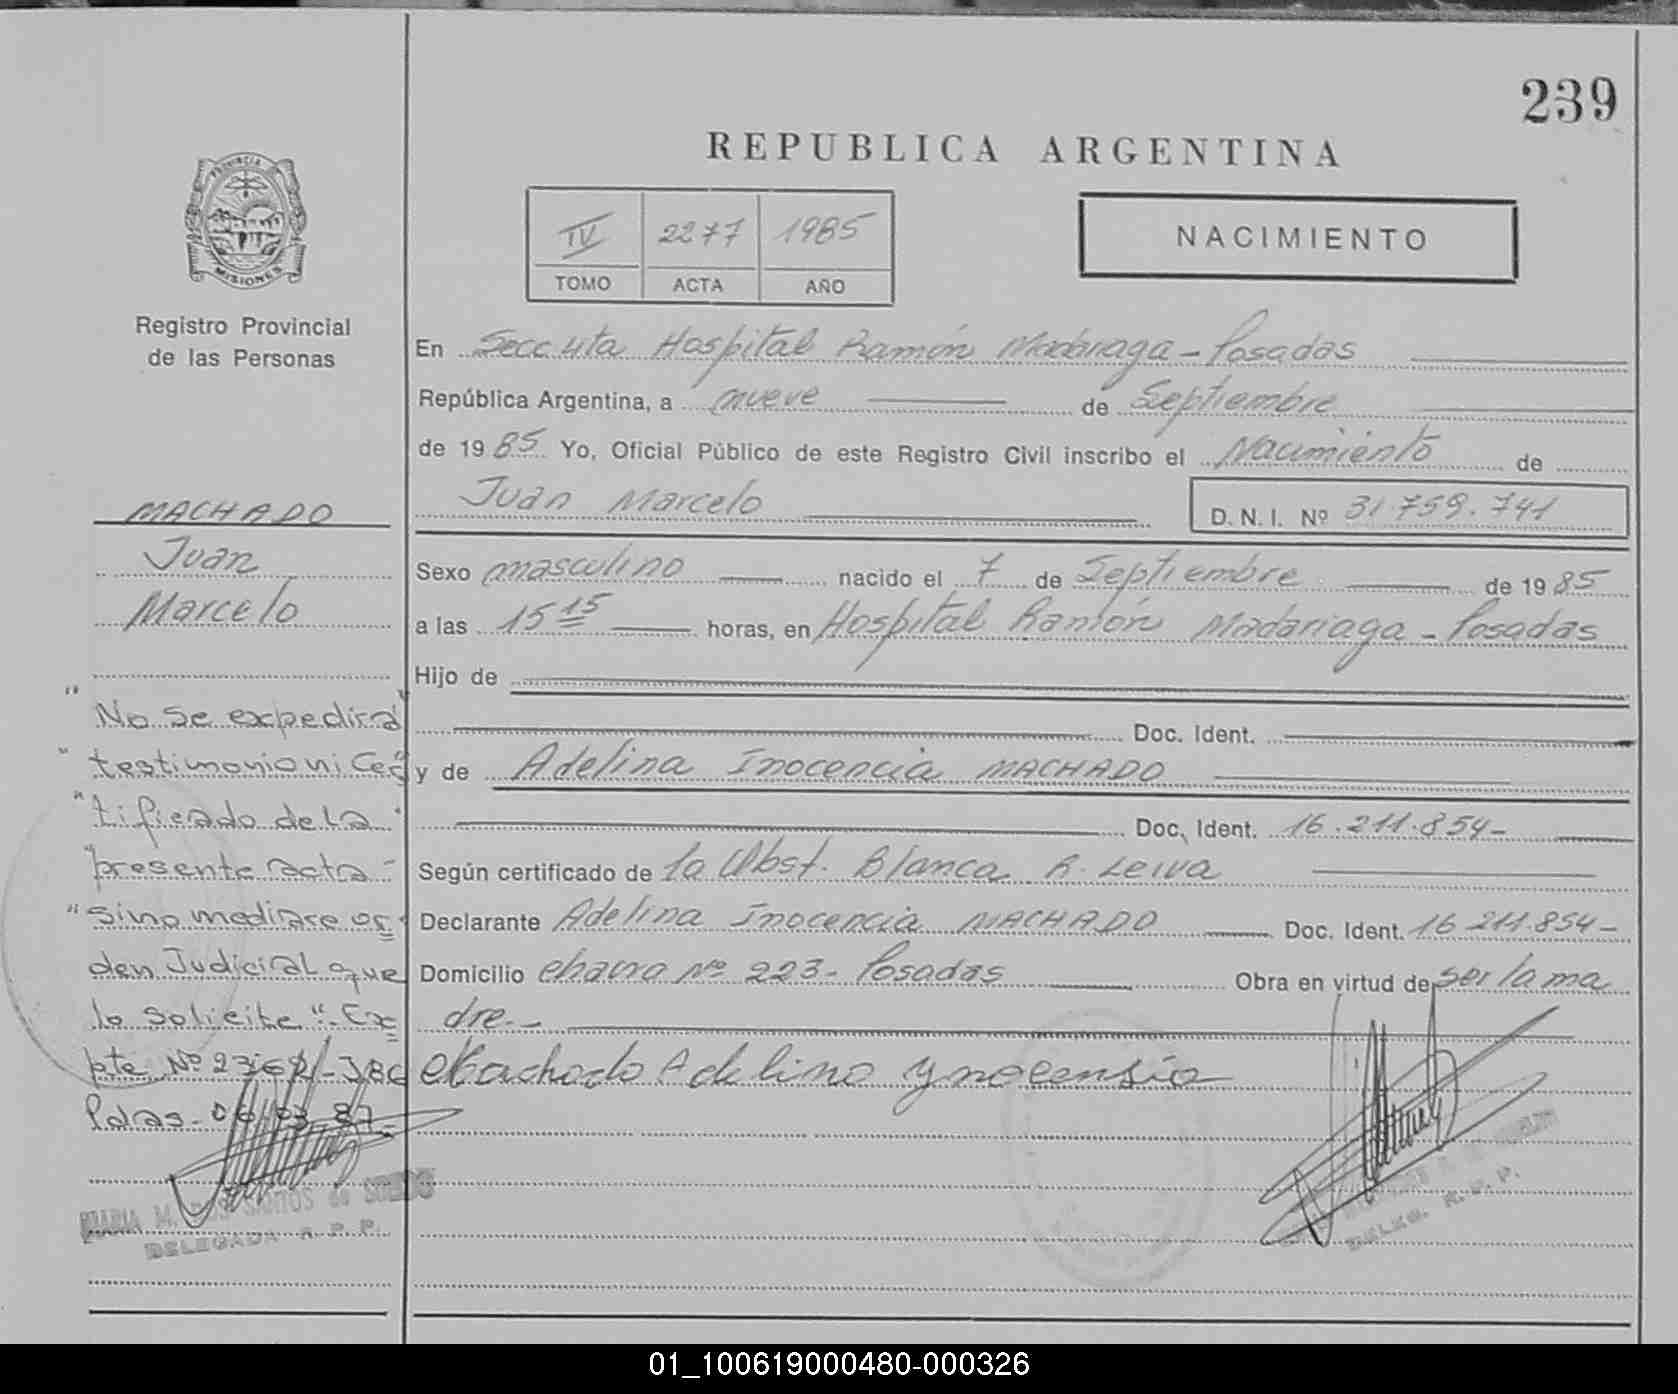 239
REPUBLICA ARGENTINA
PROVINCIA
MISIONES
Registro Provincial
de las Personas
IV 2277 1985
TOMO ACTA AÑO
NACIMIENTO
En Secc 4ta Hospital Ramón Madariaga - Posadas
República Argentina, a nueve de Septiembre
de 1985 Yo, Oficial Público de este Registro Civil inscribo el Nacimiento de
Juan Marcelo D. N. I. Nº 31.759.741
Sexo masculino nacido el 7 de Septiembre de 1985
a las 15 15 horas, en Hospital Ramón Madariaga - Posadas
Hijo de
Doc. Ident.
y de Adelina Inocencia MACHADO
Doc. Ident. 16.211.854-
Según certificado de la Obst. Blanca R. Leiva
Declarante Adelina Inocencia MACHADO Doc. Ident. 16 211.854-
Domicilio chacra Nº 223- Posadas Obra en virtud de ser la ma
dre.-
Machado Adelina Ynocensia
MACHADO
Juan
Marcelo
"No se expedirá"
"testimonio ni Cer"
"tificado de la"
"presente acta-
"sino mediare or"
den Judicial que
lo solicite". Ex
pte Nº
Pdas- 06/03-87-
MARIA M. DOS SANTOS de
DELEGADA R. P. P.
DELEG. R. P. P.
01_100619000480-000326